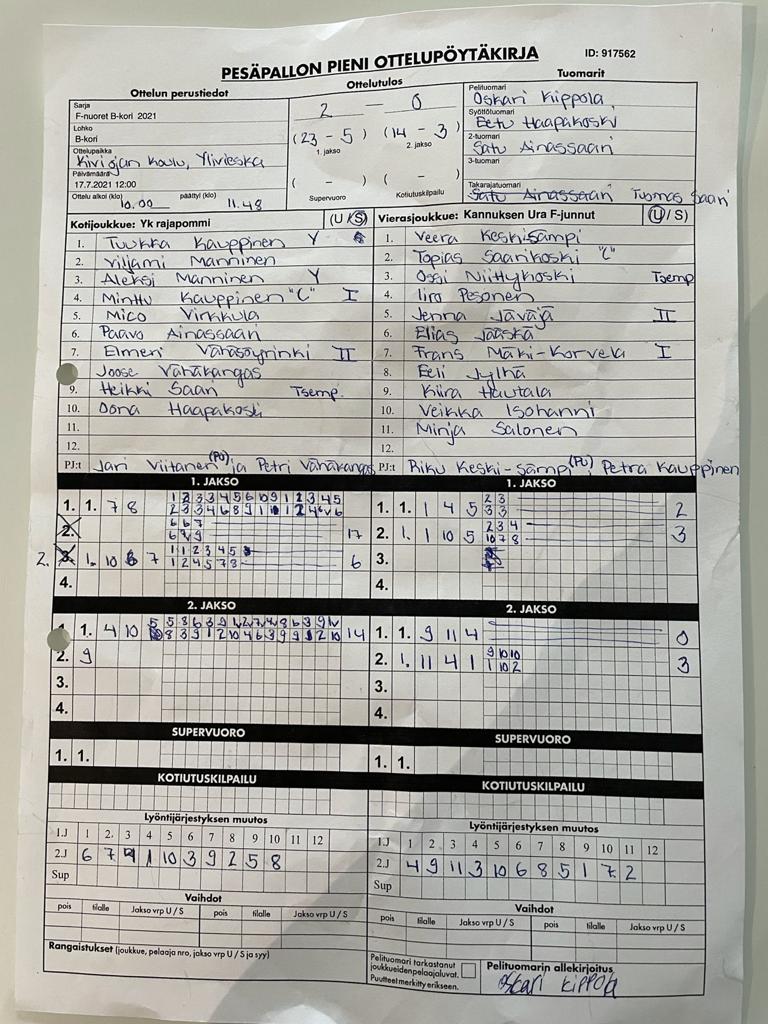 PESÄPALLON PIENI OTTELUPÖYTÄKIRJA
ID: 917562
Ottelun perustiedot
Ottelutulos
Tuomarit
Sarja
F-nuoret B-kori 2021
Lohko
B-kori
Ottelupaikka
Kiviojan koulu, Ylivieska
Päivämäärä
17.7.2021 12:00
Ottelu alkoi (klo) 10.00 päättyi (klo) 11.48
2 — 0
(23 - 5) (14 - 3)
1. jakso 2. jakso
( - ) ( - )
Supervuoro Kotiutuskilpailu
Pelituomari
Oskari Kippola
Syöttötuomari
Eetu Haapakoski
2-tuomari
Satu Ainassaari
3-tuomari
Takarajatuomari
Satu Ainassaari Tuomas Saari
Kotijoukkue: Yk rajapommi (U/S)
1. Tuukka Kauppinen Y
2. Viljami Manninen
3. Aleksi Manninen Y
4. Minttu Kauppinen "C" I
5. Mico Virkkula
6. Paavo Ainassaari
7. Elmeri Vähäsöyrinki II
Joose Vähäkangas
9. Heikki Saari Tsemp.
10. Oona Haapakoski
11.
12.
PJ:t Jari Viitanen (PU) ja Petri Vähäkangas
Vierasjoukkue: Kannuksen Ura F-junnut (U/S)
1. Veera Keskisämpi
2. Topias Saarikoski "C"
3. Ossi Niittykoski Tsemp
4. Iiro Pesonen
5. Jenna Jäväjä II
6. Elias Jääskä
7. Frans Mäki-Korvela I
8. Eeli Jylhä
9. Kiira Hautala
10. Veikka Isohanni
11. Minja Salonen
12.
PJ:t Riku Keski-Sämpi (PU), Petra Kauppinen
1. JAKSO
1. 1. 7 8
1 2 3 3 4 5 6 10 9 1 2 3 4 5
2.
6 6 7
17
2. 3. 1. 10 6 7
1 1 2 3 4 5
1 2 4 5 7 8
6
4.
1. JAKSO
1. 1. 1 4 5
2 3
3 3
2
2. 1. 1 10 5
2 3 4
10 7 8
3
3.
4.
2. JAKSO
1. 4 10
14
2. 9
3.
4.
2. JAKSO
1. 1. 9 11 4
0
2. 1. 11 4 1
9 10 10
1 10 2
3
3.
4.
SUPERVUORO
1. 1.
SUPERVUORO
1. 1.
KOTIUTUSKILPAILU
KOTIUTUSKILPAILU
Lyöntijärjestyksen muutos
1.J 1 2. 3 4 5 6 7 8 9 10 11 12
2.J 6 7 4 1 10 3 9 2 5 8
Sup
Lyöntijärjestyksen muutos
1.J 1 2 3 4 5 6 7 8 9 10 11 12
2.J 4 9 11 3 10 6 8 5 1 7 2
Sup
Vaihdot
pois tilalle Jakso vrp U / S pois tilalle Jakso vrp U / S
Vaihdot
pois tilalle Jakso vrp U / S pois tilalle Jakso vrp U / S
Rangaistukset (joukkue, pelaaja nro, jakso vrp U / S ja syy)
Pelituomari tarkastanut
joukkueiden pelaajaluvat.
Puutteet merkitty erikseen.
Pelituomarin allekirjoitus
Oskari Kippola